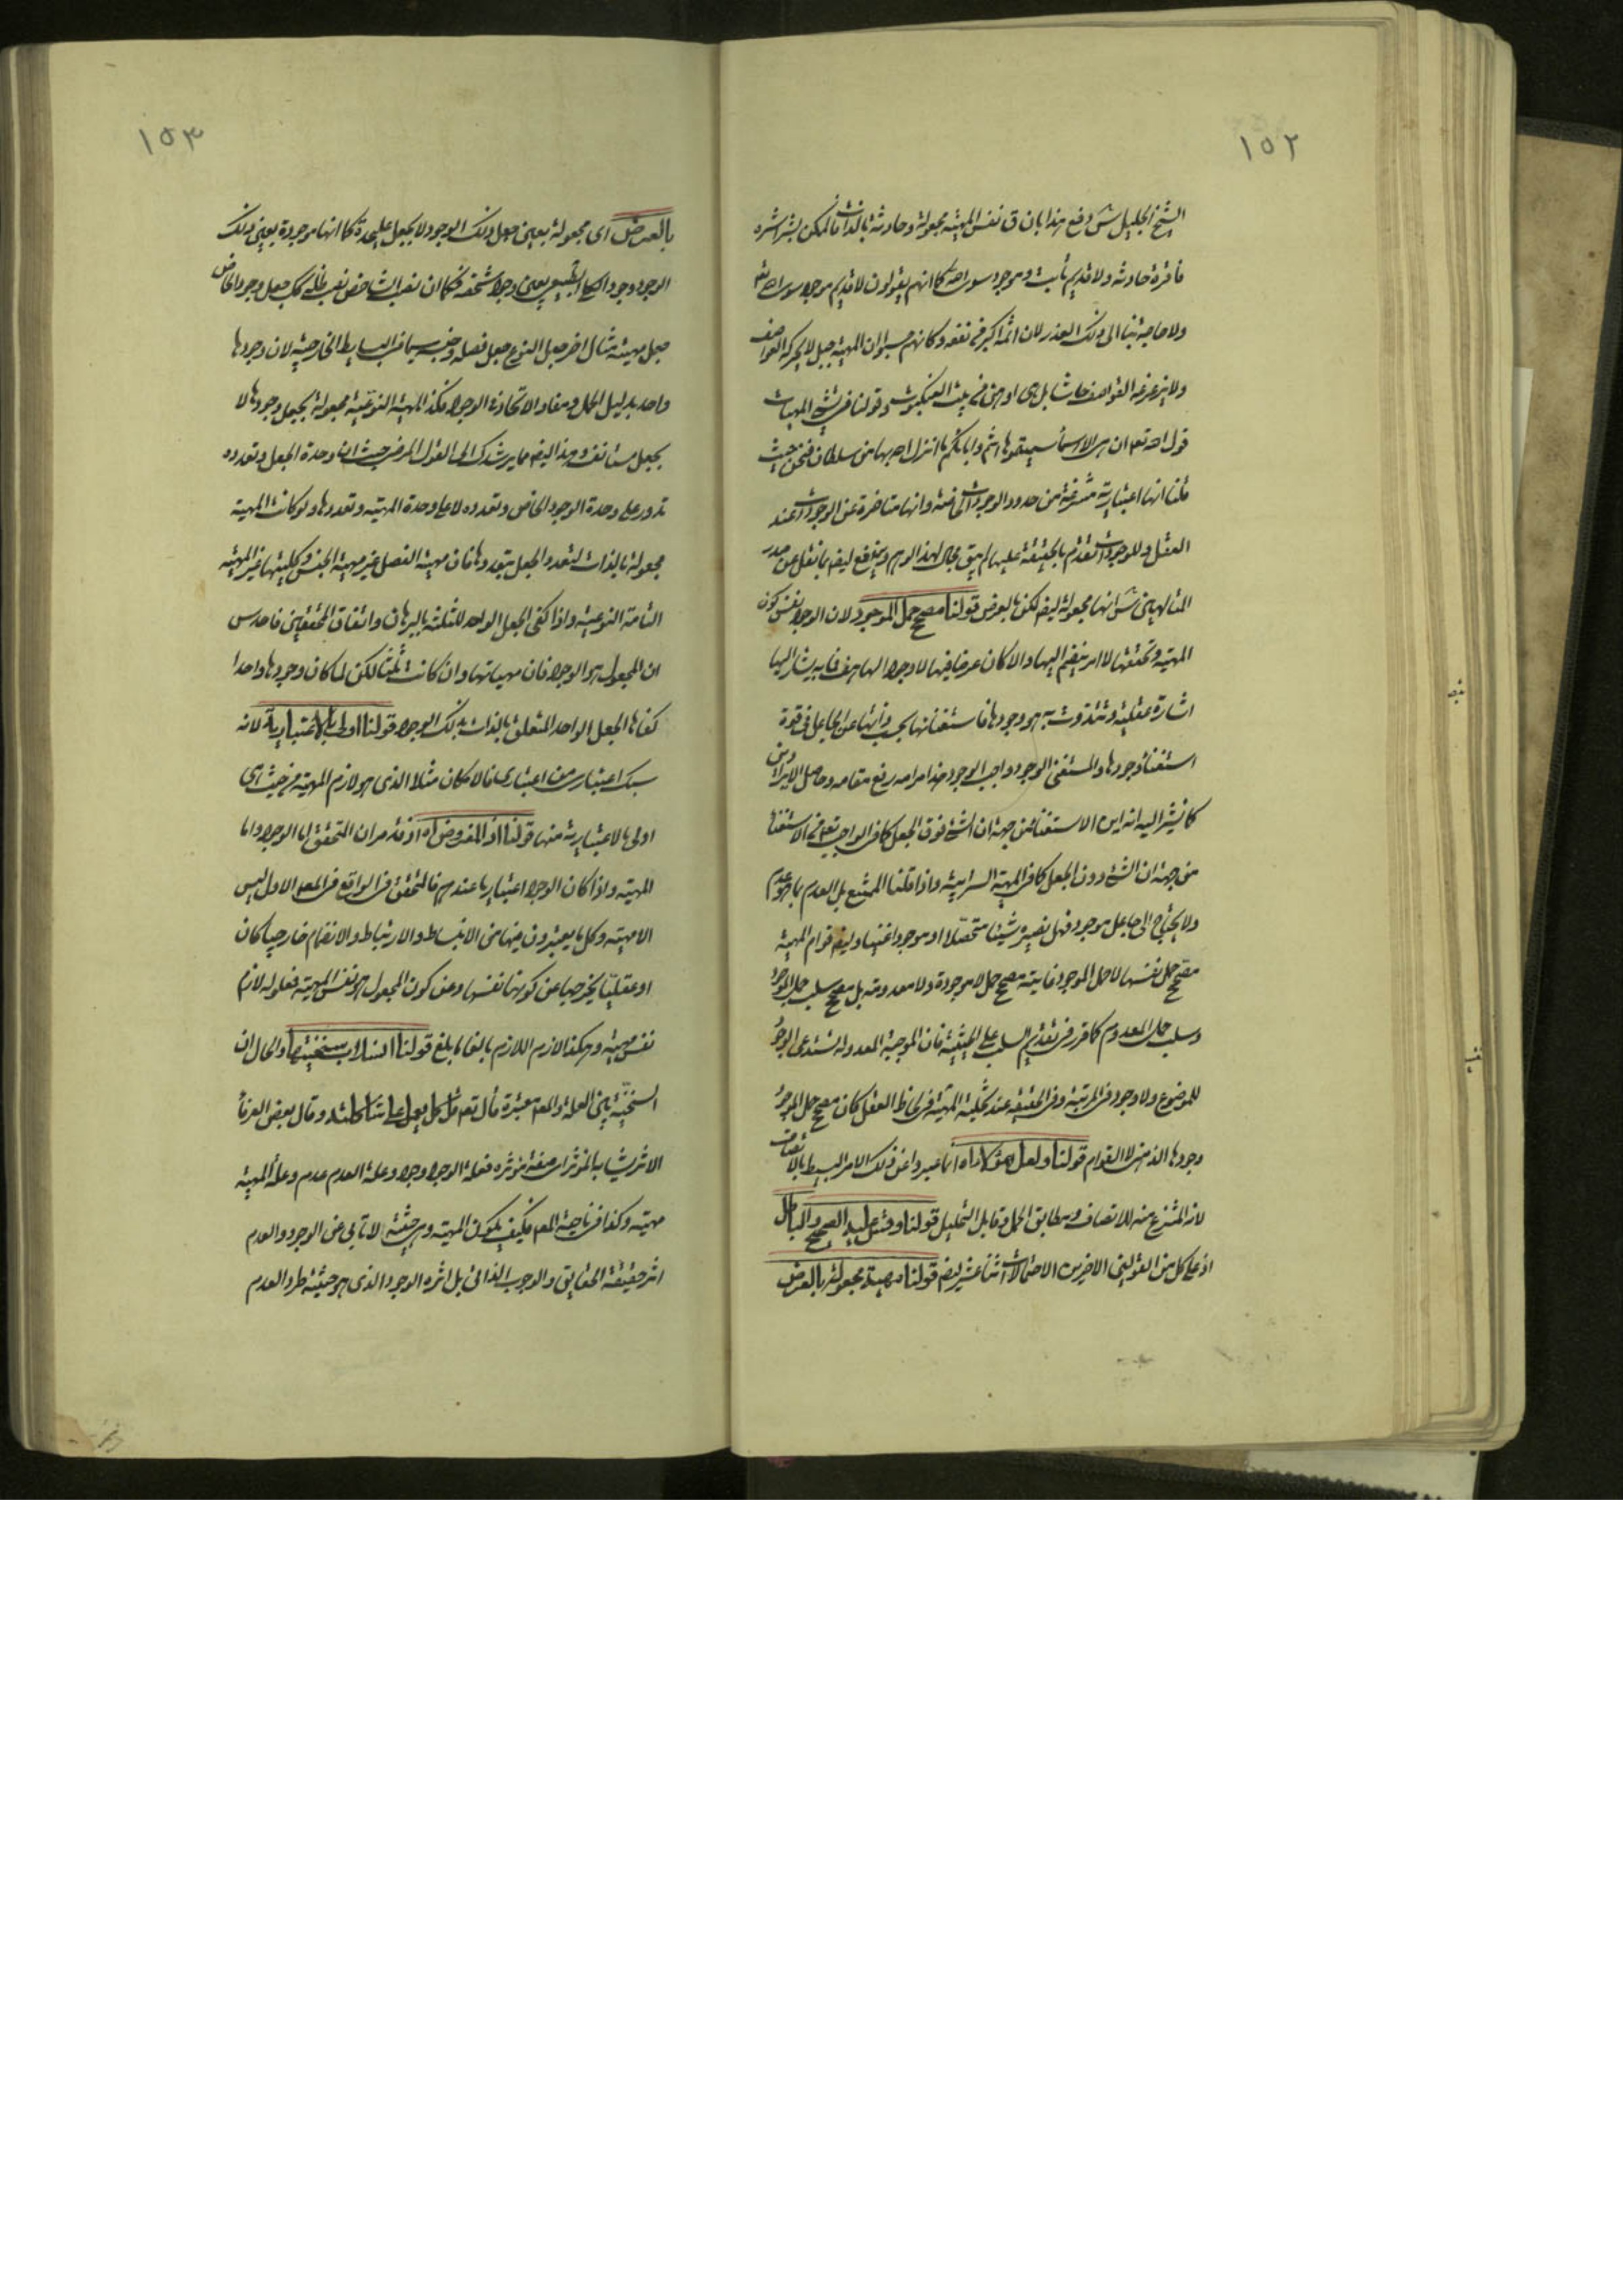 ١٥٢
الشيخ الجليل س دفع هذا بان ق نفس المهية مجعولة وحادثة بالذات فالممكن بشراشره
فاقرة حادثه ولا قديم ثابت وموجود سوى الله كما انهم يقولون لا قديم موجود سوى الله تع
ولا حاجة بنا الى ذلك العذر لان اثمه اكبر من نفعه وكانهم حسبوا ان المهية جبل لا يحركه العواصف
ولا يزعزعه القواصف حاشا بل هى اوهن من بيت العنكبوت وقولنا فى شيئية المهيات
قول الله تعه ان هى الا اسماء سميتموها انتم واباؤكم ما انزل الله بها من سلطان فنحن حيث
قلنا انها اعتبارية منتزعة من حدود الوجودات الخاصة وانها متاخرة عن الوجودات عند
العقل وللوجودات تقدم بالحقيقة عليها لم يبق مجال لهذا الوهم ويندفع ايضه ما نقل عن صدر
المتالهين س انها مجعولة ايضه لكن بالعرض قولنا مصحح حمل الموجود لان الوجود نفس كون
المهية وتحققها لا امر ينضم اليها والا كان عرضا فيها لا وجود الها هف فما به يشار اليها
اشارة عقلية وتتذوت به هو وجودها فاستغنائها بحسب ذاتها عن الجاعل فى قوة
استغناء وجودها والمستغنى الوجود واجب الوجود هذا مرامه رفع مقامه وحاصل الايراد من
كما نشير اليه انه اين الاستغناء من جهة ان الشئ فوق الجعل كما فى الواجب تعه من الاستغناء
من جهة ان الشئ دون الجعل كما فى المهية السرابية واذا قلنا الممتنع بل العدم بما هو عدم
ولا يحتاج الى جاعل موجود فهل نصيره شيئا متحصلا او موجودا غنيا وليس قوام المهية
مصحح حمل نفسها لا حمل الموجود غايته مصحح حمل لا موجودة ولا معدومة بل مصحح سلب حمل الموجود
وسلب حمل المعدوم كما قرر فى تقديم السلب على الحيثية فان الموجبة المعدولة تستدعى الوجود
للموضوع ولا وجود فى المرتبة وفى الحقيقه عند تخلية المهية فى لحاظ العقل كان مصحح حمل الموجود
وجودها الذهنى لا القوام قولنا ولعل هؤلاء اه انما عبروا عن ذلك الامر البسيط بالاتصاف
لانه المنتزع منه للاتصاف ومطابق الحمل وقابل التحليل قولنا وقس عليه الصحيح والباطل
اذ على كل من القولين الاخيرين الاحتمالات اثنا عشر ايضه قولنا مهية مجعولة بالعرض
١٥٣
بالعرض اى مجعولة بعين جعل ذلك الوجود لا بجعل عليحدة كما انها موجودة بعين ذلك
الوجود وجود الكلى الطبيعى بعين وجود شخصه فكما ان نصب الشاخص نصب ظله كك جعل وجود الخاص
جعل مهيته مثال اخر جعل النوع جعل فصله وجنسه سيما فى البسايط الخارجية لان وجودها
واحد بدليل الحمل ومفاده الاتحاد فى الوجود فكذ المهية النوعية مجعولة بجعل وجودها لا
بجعل مستانف وهذا ايضه مما يرشدك الى القول المرضى حيث ان وحدة الجعل وتعدده
تدور على وحدة الوجود الخاص وتعدده لا على وحدة المهية وتعددها ولو كانت المهية
مجعولة بالذات لتعدد الجعل بتعددها فان مهية الفصل غير مهية الجنس وكليتهما غير المهية
التامة النوعية واذا كفى الجعل الواحد للثلثة بالبرهان واتفاق المحققين فاحدس
ان المجعول هو الوجود فان مهياتها وان كانت ثلثا لكن لما كان وجودها واحدا
كفاها الجعل الواحد المتعلق بالذات بذلك الوجود قولنا اولى بالاعتبارية لانه
سبك اعتبارى من اعتبارى فالامكان مثلا الذى هو لازم المهية من حيث هى
اولى بالاعتبارية منها قولنا اذ المفروض اه اذ قد مر ان المتحقق اما الوجود واما
المهية واذا كان الوجود اعتباريا عندهم فالمتحقق فى الواقع فى المعلول الاول ليس
الا مهيته وكل ما يعتبرون فيها من الانبساط والارتباط والانضمام خارجيا كان
او عقليا يخرجها عن كونها نفسها وعن كون المجعول هو نفس المهية فمعلوله لازم
نفس مهيته وهكذا لازم اللازم بالغا ما بلغ قولنا انسلاب سنخيتها والحال ان
السنخية بين العلة والمعلول معتبرة قال تعه قل كل يعمل على شاكلته وقال بعض العرفاء
الاثر يشابه المؤثر اى صفة مؤثره فعلة الوجود وجود وعلة العدم عدم وعلة المهية
مهيته وكذا فى ناحية المعلول فكيف يكون المهية وهى حيثية لا تابى عن الوجود والعدم
اثر حقيقة الحقايق والوجوب الذاتى بل اثره الوجود الذى هو حيثية طرد العدم